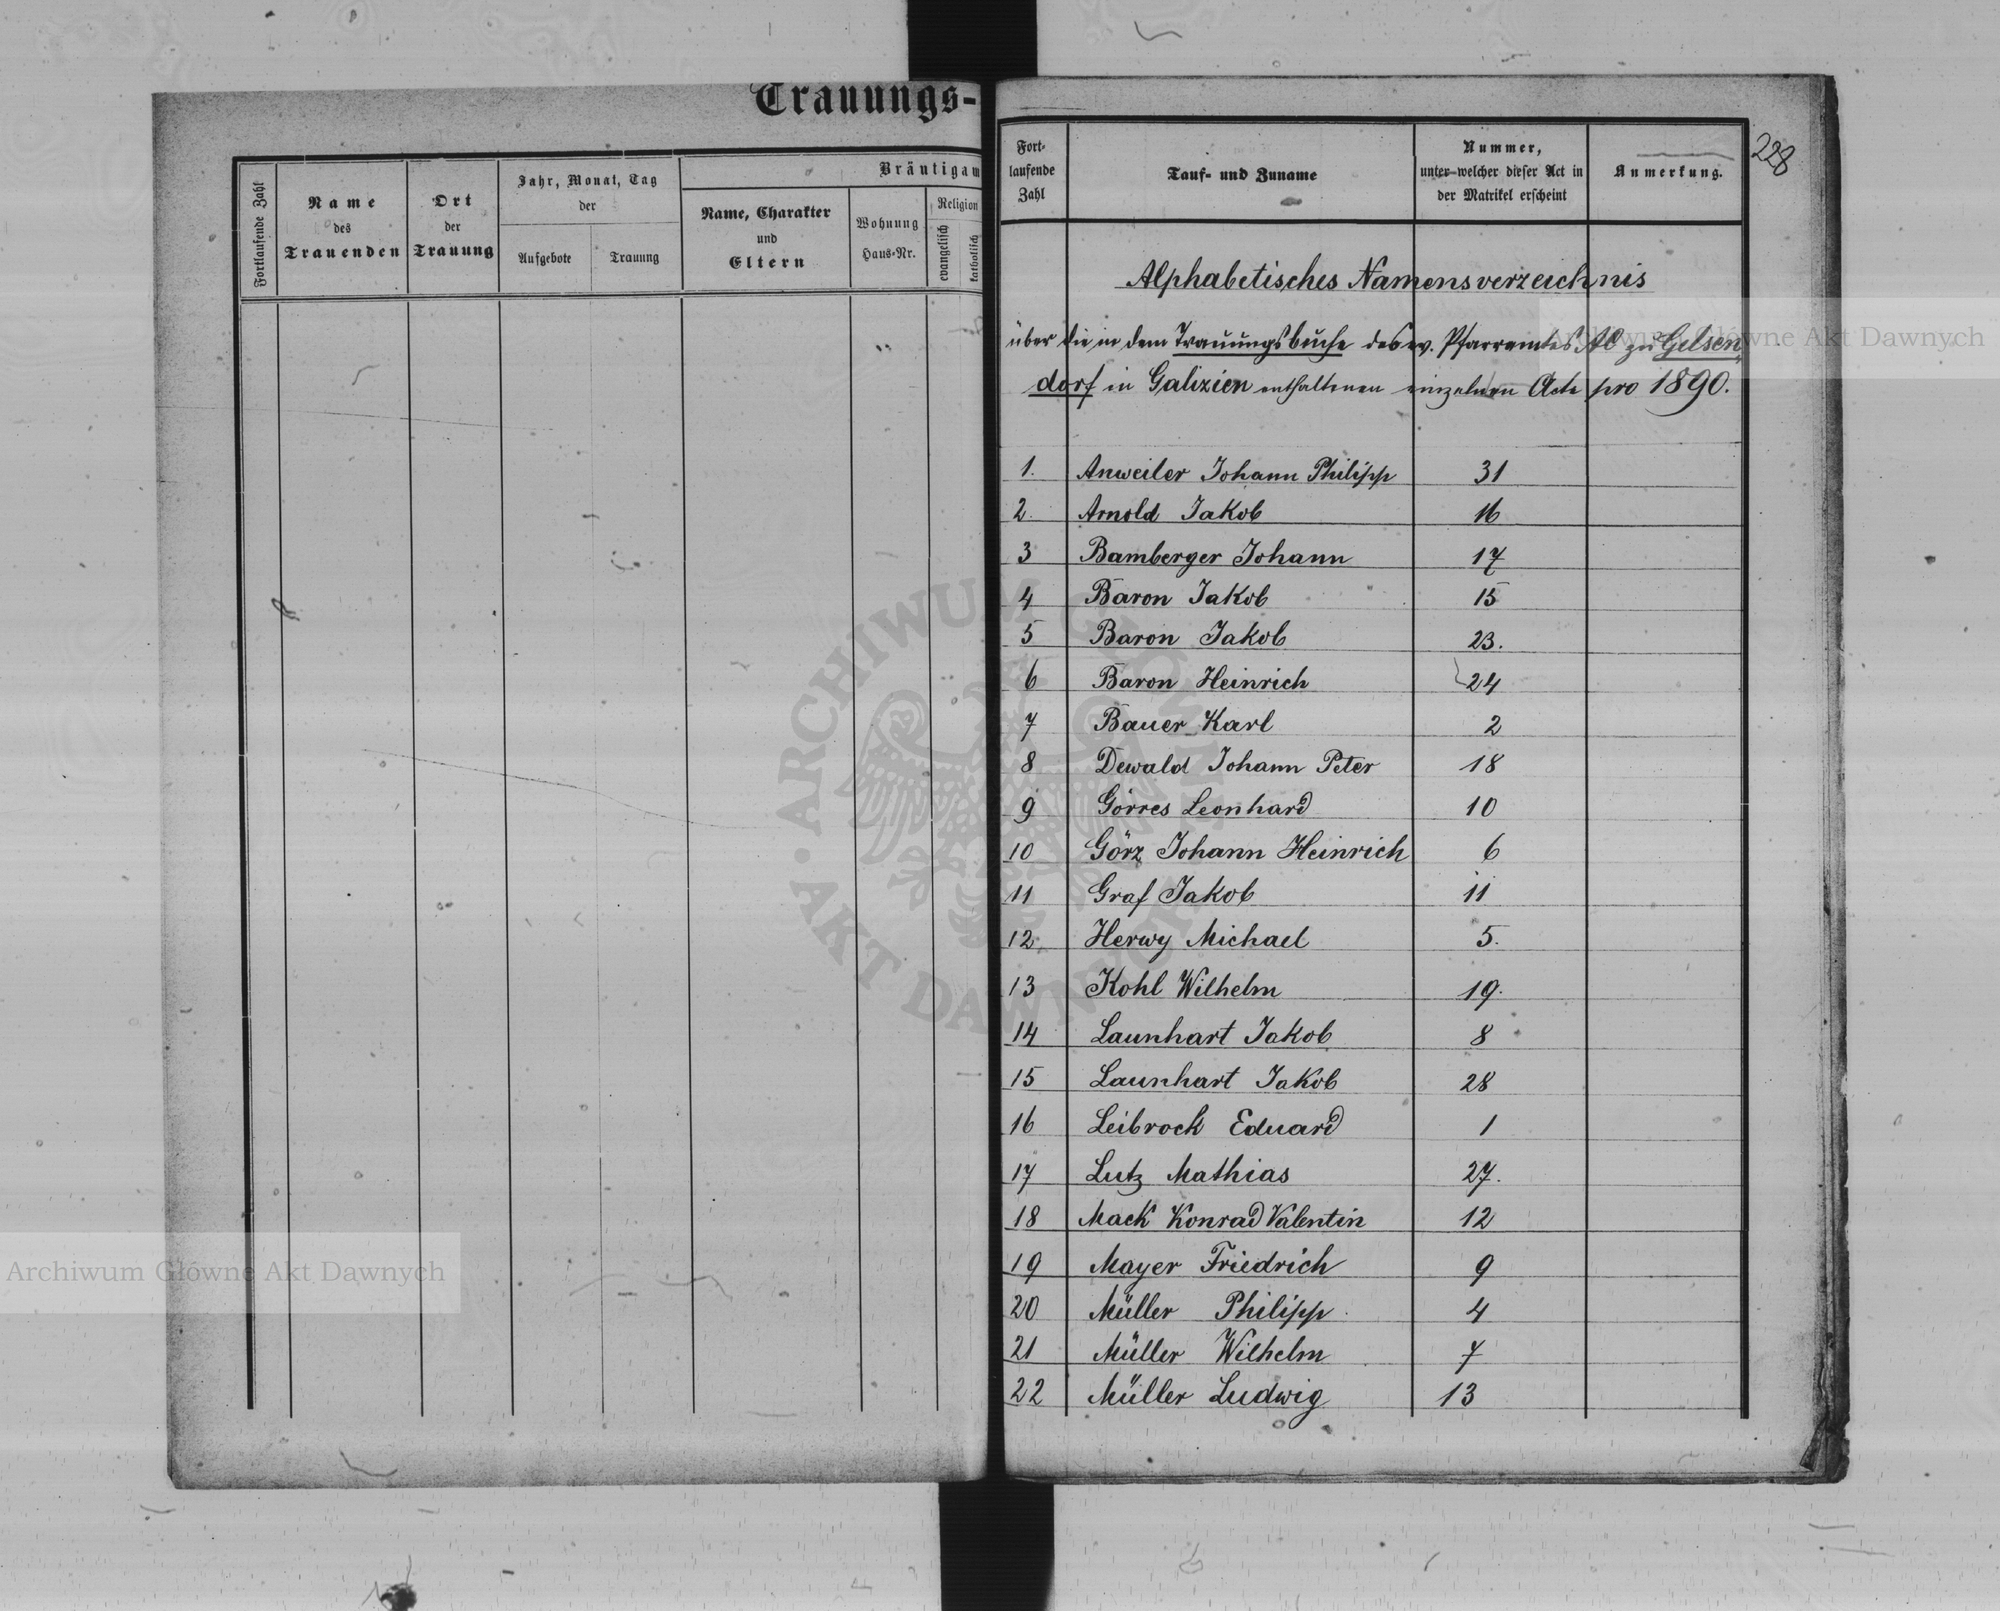 Trauungs-
Fortlaufende Zahl
Name
des
Trauenden
Ort
der
Trauung
Jahr, Monat, Tag
der
Aufgebote
Trauung
Bräutigam
Name, Charakter
und
Eltern
Wohnung
Haus-Nr.
Religion
evangelisch
katholisch
228
Fort-
laufende
Zahl
Tauf- und Zuname
Nummer,
unter welcher dieser Act in
der Matrikel erscheint
Anmerkung.
Alphabetisches Namensverzeichnis
über die in dem Trauungsbuche des ev. Pfarramtes AC zu Gelsen
dorf in Galizien enthaltenen einzelnen Acte pro 1890.
1. Anweiler Johann Philipp 31
2. Arnold Jakob 16
3 Bamberger Johann 17
4 Baron Jakob 15
5 Baron Jakob 23.
6 Baron Heinrich 24
7 Bauer Karl 2
8 Dewald Johann Peter 18
9 Görres Leonhard 10
10 Görz Johann Heinrich 6
11 Graf Jakob 11
12. Herwy Michael 5.
13 Kohl Wilhelm 19.
14 Launhart Jakob 8
15 Launhart Jakob 28
16 Leibrock Eduard 1
17 Lutz Mathias 27.
18 Mack Konrad Valentin 12
19 Mayer Friedrich 9
20 Müller Philipp 4
21 Müller Wilhelm 7
22 Müller Ludwig 13
Archiwum Główne Akt Dawnych
Archiwum Główne Akt Dawnych
ARCHIWUM GŁÓWNE AKT DAWNYCH